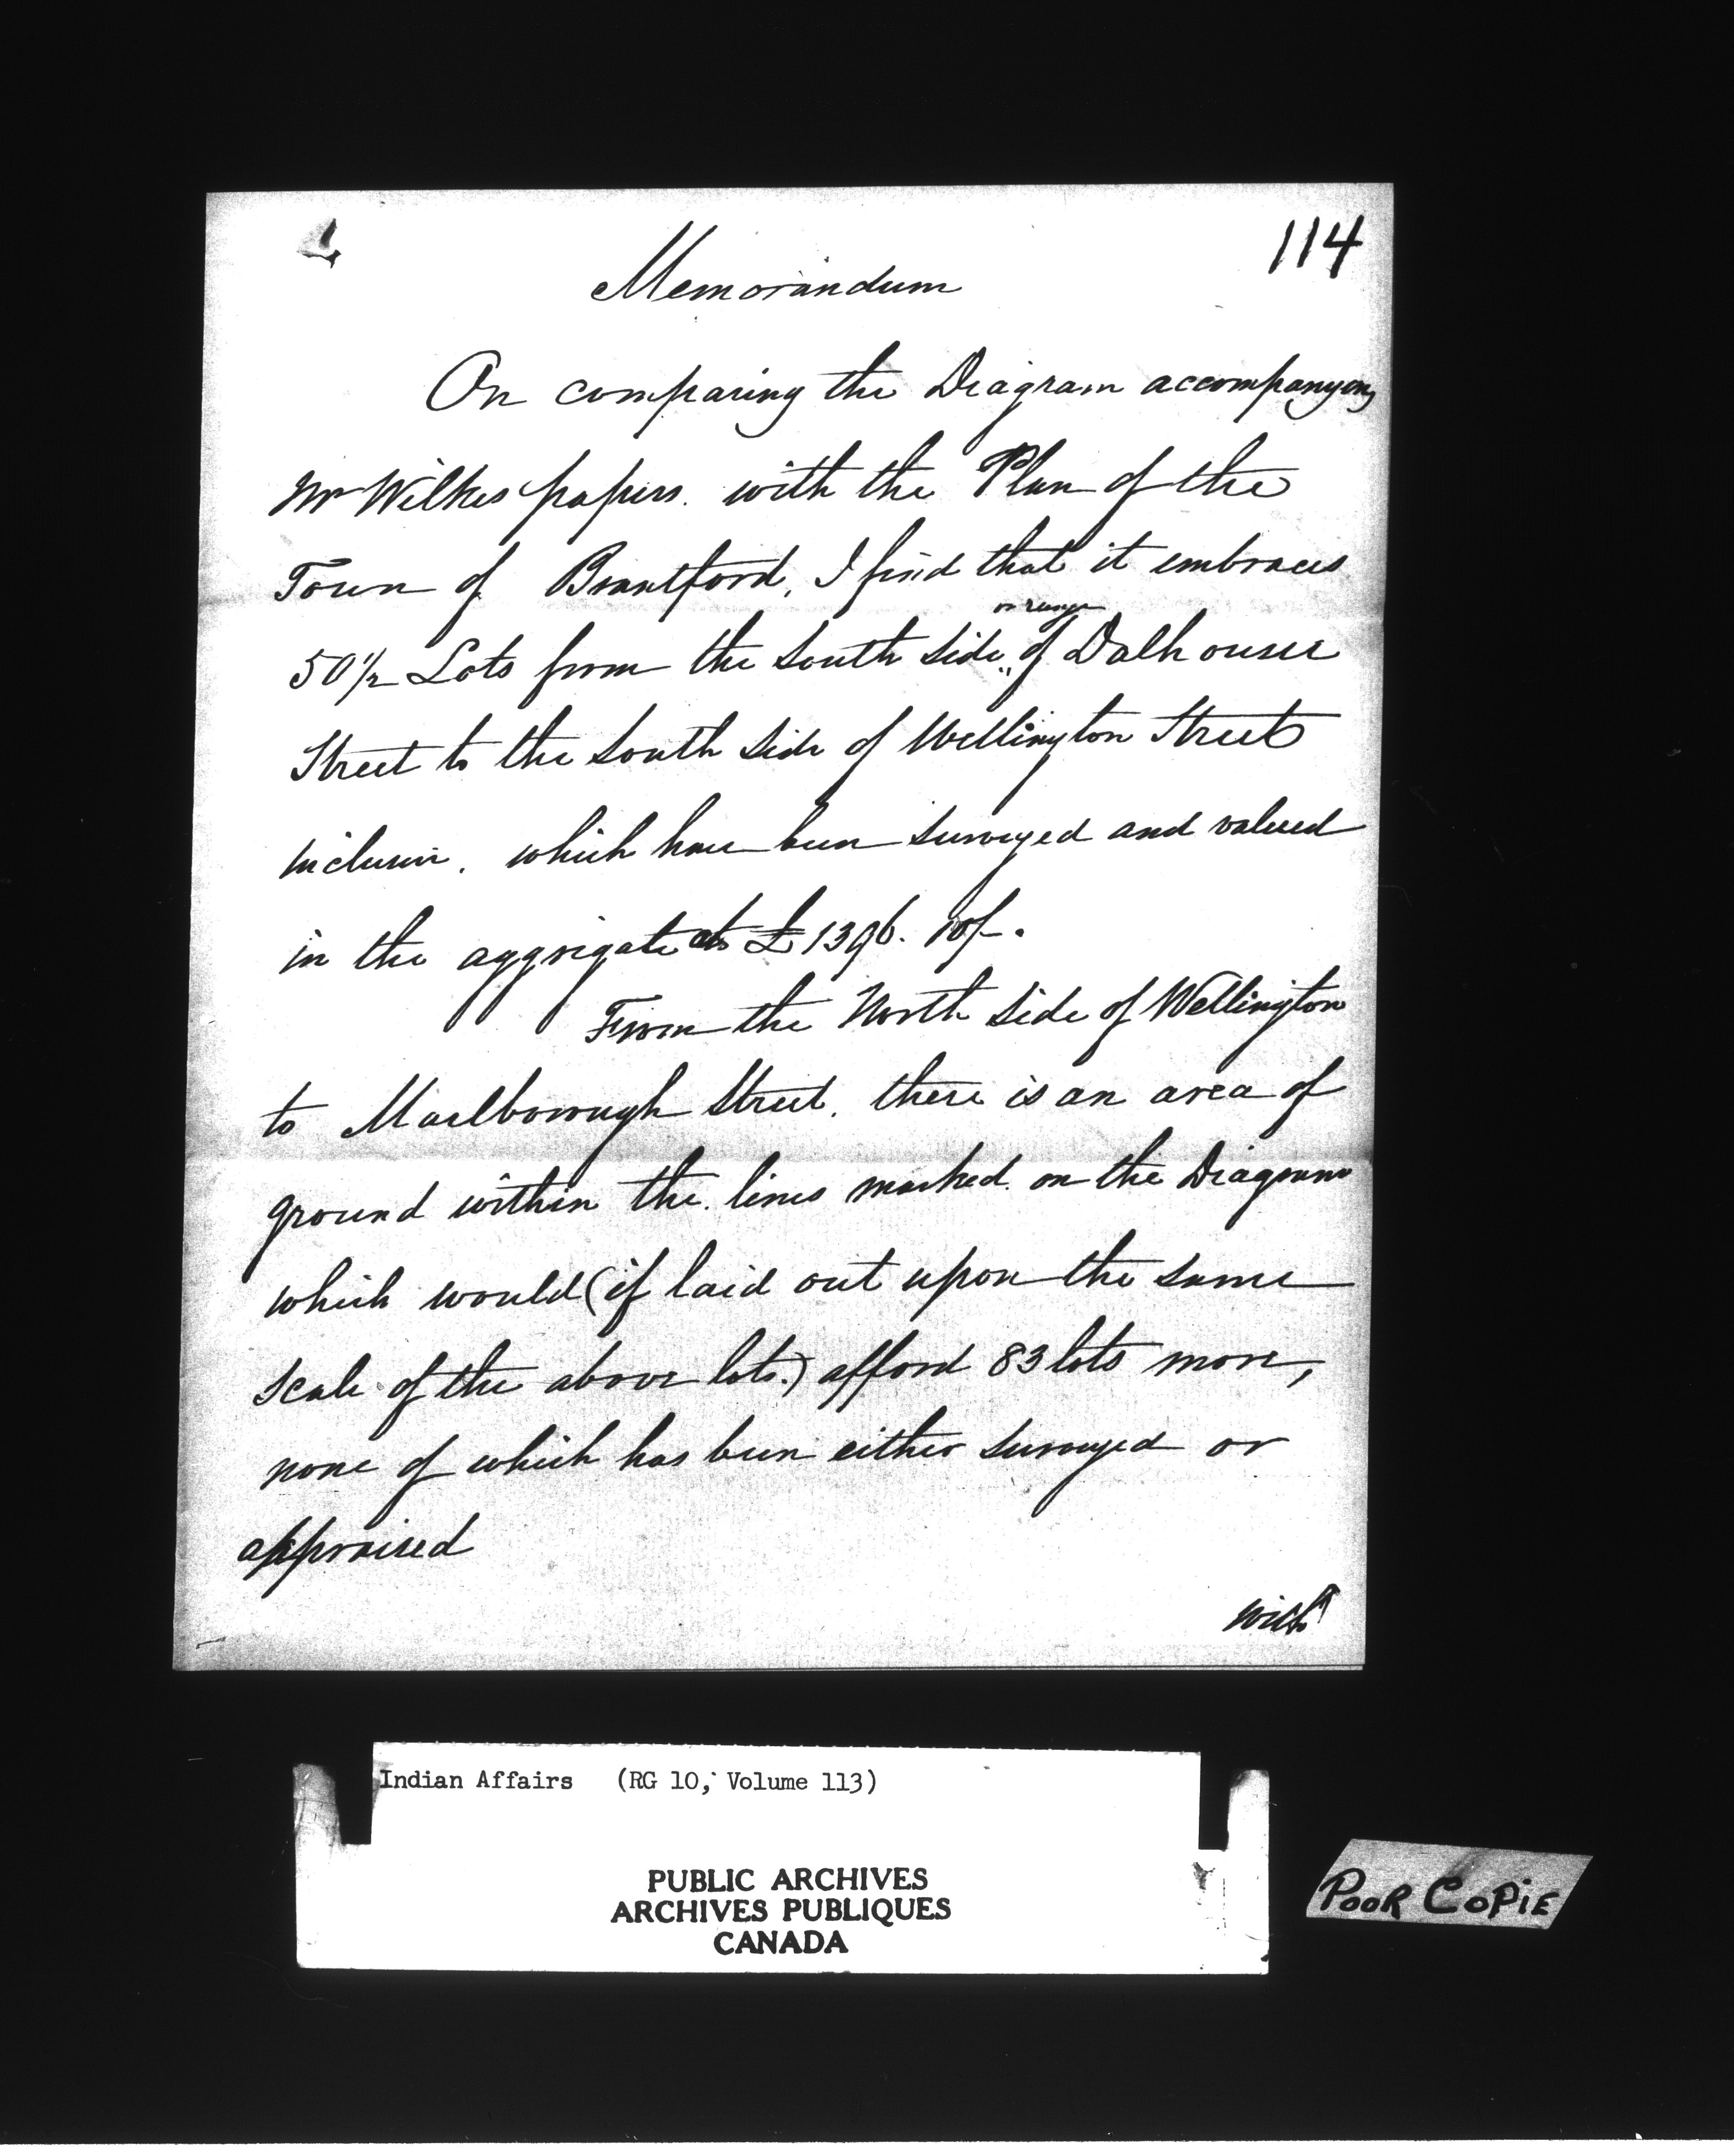 114
Memorandum
On comparing the Diagram accompanying
Mr Wilkes papers. with the Plan of the
Town of Brantford, I find that it embraces
50 1/2 Lots from the South Side or range of Dalhousie
Street to the South Side of Wellington Street
inclusive. which have been surveyed and valued
in the aggregate at £1396. 10/-.
From the North Side of Wellington
to Marlborough Street. there is an area of
ground within the lines marked on the Diagram
which would (if laid out upon the same
scale of the above lots.) afford 83 lots more,
none of which has been either surveyed or
appraised
Indian Affairs (RG 10, Volume 113)
PUBLIC ARCHIVES
ARCHIVES PUBLIQUES
CANADA
POOR COPIE